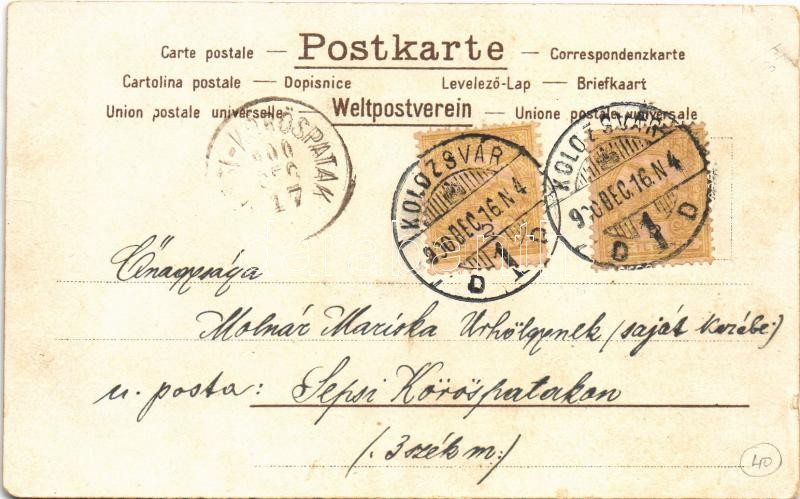 Carte postale — Postkarte — Correspondenzkarte
Cartolina postale — Dopisnice Levelező-Lap — Briefkaart
Union postale universelle — Weltpostverein — Unione postale universale
KÖRÖSPATAK
900
KOLOZSVÁR
900 DEC. 16. N 4
D 1 D
KOLOZSVÁR
900 DEC. 16. N 4
D 1 D
Őnagysága
Molnár Mariska Urhölgynek (saját kezébe:)
u. posta: Sepsi Köröspatakon
(. 3szék m:)
40